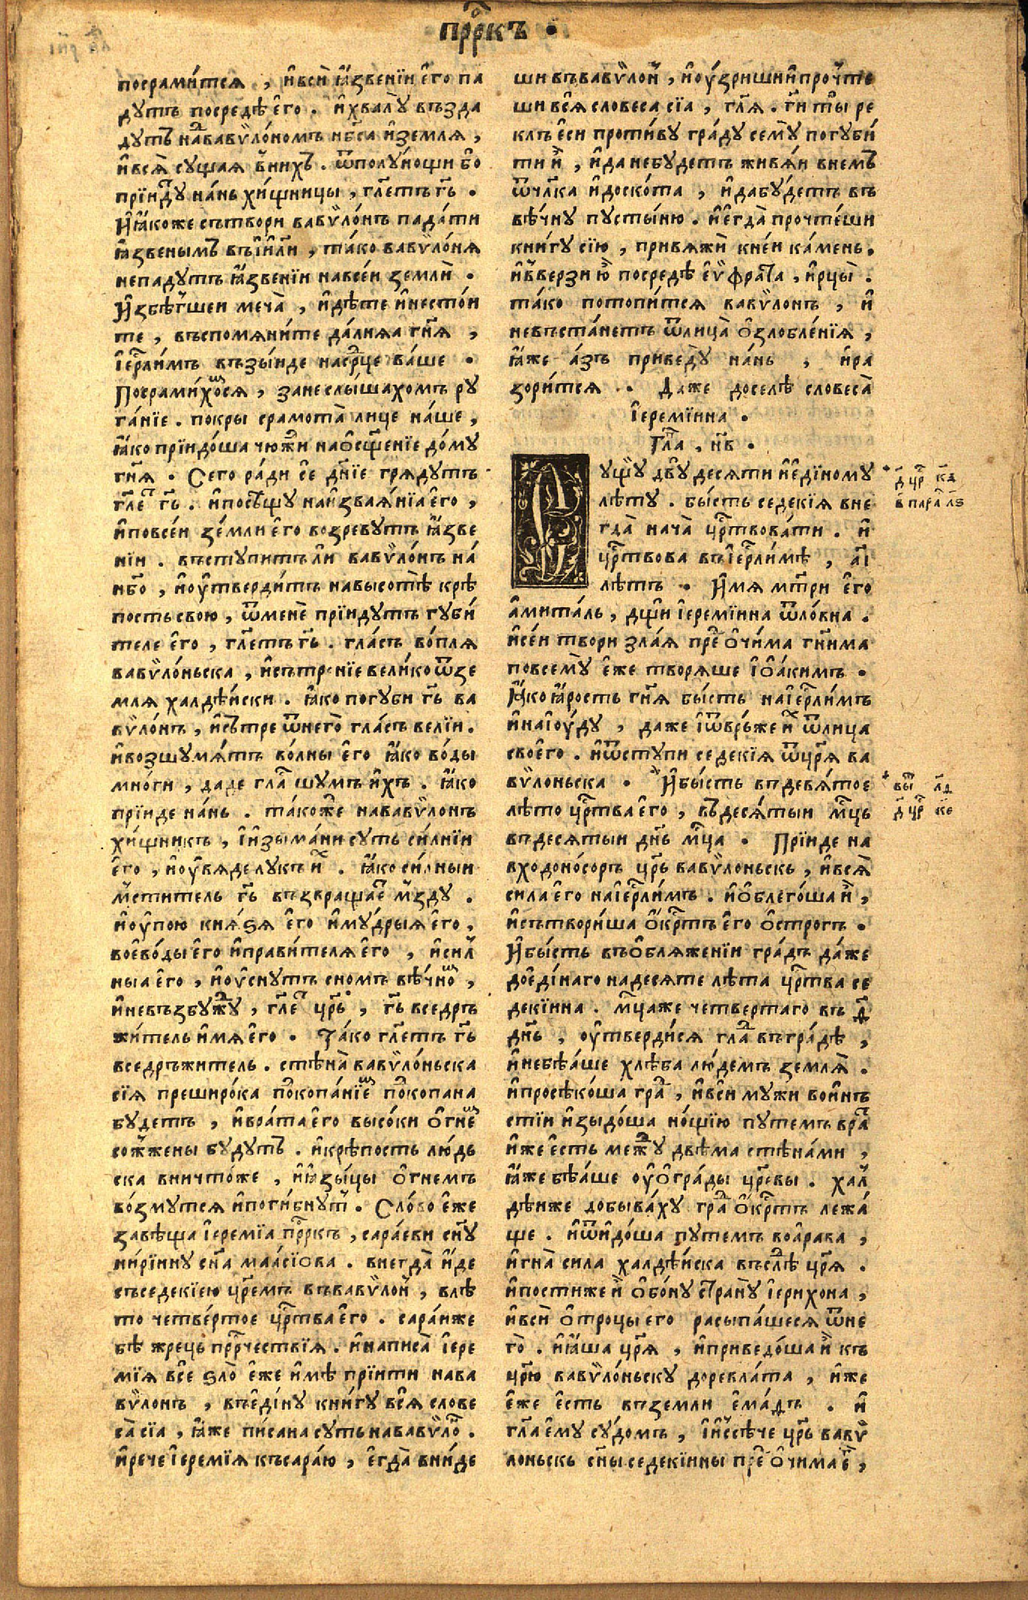 прⷪ҇ркъ .
посрами́тсѧ , и҆всѝ ꙗ҆́звенїи є҆го̀ па
дꙋтъ посредѣ̀ є҆го̀ . и҆хвалꙋ̀ възда
дꙋтъ наⷣвавѷло́номъ нб҃са и҆землѧ̀ ,
и҆всѧ̀ сꙋ́щаѧ вни́хъ . ѿполꙋ́нощи бо
прїи́дꙋ на́нь хи́щницы , гл҃етъ гь҃ .
И҆ꙗ҆́коже сътворѝ вавѷло́нъ па́дати
ꙗ҆́звенымъ въі҆и҃ли , та́ко вавѷло́нѧ
непадꙋтъ ꙗ҆́звенїи навсе́и землѝ .
И҆збѣ́гшеи меча̀ , и҆дѣ́те и҆несто́и
те , въспомѧни́те да́лнѧѧ гн҃ѧ ,
і҆ерⷭ҇ли́мъ възы́иде насрⷣце ва́ше .
Посрами́хоⷨсѧ , занеслы́шахомъ рꙋ
га́нїе . покры̀ срамота̀ лице на́ше ,
ꙗ҆́ко прїидо́ша чюжїи наѡ҆сщ҃е́нїе до́мꙋ
гн҃ѧ . Сего̀ ра́ди се дн҃їе грѧдꙋ́тъ
гл҃еⷮ гь҃ . и҆посѣщꙋ̀ наи҆зваѧ́нїа є҆го̀ ,
и҆повсе́и земли є҆го̀ возревꙋ́тъ ꙗ҆́зве
нїи . въстꙋпитъли вавѷло́нъ на́
нб҃о , и҆ᲂу҆тверди́тъ навысотѣ̀ крѣ́
постьсвою̀ , ѿменѐ прїи́дꙋтъ гꙋби́
теле є҆го̀ , гл҃етъ гь҃ . гла́съ во́плѧ
вавѷло́ньска , и҆сътре́нїе вели́ко ѿзе
млѧ̀ халдѣ́иски . ꙗ҆́ко погꙋбѝ гь҃ ва
вѷло́нъ , и҆сътрѐ ѿнего̀ гла́съ ве́лїи .
и҆возшꙋмѧ́тъ во́лны є҆го̀ ꙗ҆́ко во́ды
мно́ги , дадѐ глаⷭ шꙋмъ и҆́хъ . ꙗ҆́ко
прїи́де на́нь . та́коже нававѷло́нъ
хи́щникъ , и҆и҆зы́мани сꙋть си́лнїи
є҆го̀ , и҆ᲂу҆вѧде лꙋкъ и҆ⷯ . ꙗ҆́ко си́лныи
мсти́тель гь҃ възвраща́еⷮ мздꙋ .
и҆ᲂу҆пою̀ кнѧ́ѕѧ є҆го̀ и҆мꙋ́дрыѧ є҆го̀ ,
воево́ды є҆го̀ и҆прави́телѧ є҆го̀ , и҆си́л
ныа є҆го̀ , и҆ᲂу҆́снꙋтъ сномъ вѣ́чноⷨ ,
и҆невъзбꙋ́жⷣꙋ , гл҃еⷮ црь҃ , гь҃ вседръ
жи́тель и҆́мѧ є҆го̀ . Та́ко гл҃етъ гь҃
вседръжи́тель . стѣна̀ вавѷло́ньска
сїѧ̀ преширо́ка поⷣкопа́нїеⷨ поⷣкопана
бꙋ́детъ , и҆врата̀ є҆го̀ высо́ки ѻ҆гнеⷨ
сожжены бꙋ́дꙋтъ . и҆крѣ́пость лю́дь
ска вничто́же , и҆ꙗ҆зы́цы ѻ҆гне́мъ
во́змꙋтсѧ и҆поги́бнꙋтъ . Сло́во є҆́же
завѣ́ща і҆еремі́а прⷪ҇ркъ , сара́еви сн҃ꙋ
ни́рїинꙋ сн҃а маасі́ова . внегда̀ и҆́де
съседекі́ею цр҃емъ въвавѷло́нъ , влѣ
то четве́ртое црⷭ҇тва є҆го̀ . сара́иже
бѣ̀ жрець прⷪ҇рчествїѧ . и҆написа̀ і҆ере
мі́ѧ всѐ ѕло̀ є҆́же и҆мѣ̀ прїити нава
вѷло́нъ , въе҆ди́нꙋ кни́гꙋ всѧ̀ слове
са̀ сїа , ꙗ҆́же пи́сана сꙋть нававѷлоⷩ .
и҆речѐ і҆еремі́ѧ къ сара́ю , є҆гда̀ вни́де
ши въвавѷло́нъ , и҆ᲂу҆́зриши и҆прочте́
ши всѧ̀ словеса̀ сїа , гл҃ѧ . гⷭ҇и ты̀ ре
клъ є҆сѝ проти́вꙋ гра́дꙋ семꙋ̀ погꙋби́
ти и҆̀ , и҆да небꙋ́детъ живѧ́и внемъ
ѿчл҃ка и҆доско́та , и҆дабꙋ́детъ въ
вѣ́чнꙋ пꙋсты́ню . и҆є҆гда̀ прочте́ши
кни́гꙋ сїю̀ , привѧжѝ кне́и ка́мень .
и҆вве́рзи ю҆̀ посредѣ̀ є҆ѵфра́та , и҆рцы̀ .
та́ко потопи́тсѧ вавѷло́нъ , и҆
невъста́нетъ ѿлица̀ ѻ҆злобле́нїѧ ,
ꙗ҆́же а҆́зъ приведꙋ̀ на́нь , и҆ра
зори́тсѧ . Да́же доселѣ̀ словеса̀
і҆еремі́ина .
Глⷡ҇а , н҃в .
Вꙋщꙋ двꙋ десѧти и҆є҆ди́номꙋ
лѣтꙋ . бы́сть седекі́ѧ вне
гда̀ нача̀ црⷭ҇твова́ти . и҆
црⷭ҇твова въі҆ерⷭ҇ли́мѣ , а҃і
лѣтъ . И҆мѧ мт҃ри є҆го̀
а҆мита́ль , дщи і҆еремі́ина ѿло́вна .
и҆се́и творѝ зла́ѧ преⷣ ѻ҆чи́ма гн҃има
повсемꙋ̀ є҆́же творѧ́ше і҆ѡ҆аки́мъ .
Ꙗ҆́ко ꙗ҆́рость гн҃ѧ бы́сть наі҆ерⷭ҇ли́мъ
и҆наі҆ᲂу҆́дꙋ , даже и҆ѿвръ́же и҆ⷯ ѿлица
своего̀ . и҆ѿстꙋпѝ седекі́ѧ ѿцр҃ѧ ва
вѷло́ньска . И҆бы́сть вдевѧ́тое
лѣ́то црⷭ҇тва є҆го̀ , вдесѧ́тыи мⷭ҇ць
вдесѧтыи днь҃ мⷭ҇ца . Прїи́де на
входоно́соръ црь҃ вавѷло́ньскъ , и҆всѧ̀
сила є҆го̀ наі҆ерⷭ҇ли́мъ . и҆ѻ҆блего́ша и҆̀ ,
и҆сътвори́ша ѻ҆́крⷭ҇тъ є҆го̀ ѻ҆стро́гъ .
И҆бы́сть въѻ҆блѧже́нїи гра́дъ да́же
дое҆ди́наго надесѧте лѣта црⷭ҇тва се
декі́ина . мⷭ҇цаже четвертаго въ д҃
днь҃ , ᲂу҆тверди́сѧ глаⷣ въгра́дѣ ,
и҆небѣ́аше хлѣ́ба лю́демъ землѧ̀ .
и҆просѣко́ша граⷣ , и҆всѝ мꙋ́жи во́инь
стїи и҆зыдо́ша но́щїю пꙋте́мъ враⷮ
и҆же є҆́сть межⷣꙋ двѣма̀ стѣна́ми ,
ꙗ҆́же бѣ́аше ᲂу҆ѻ҆гра́ды цр҃евы . хал
дѣ́иже добыва́хꙋ граⷣ ѻ҆́крⷭ҇тъ лежа́
ще . и҆ѿидо́ша пꙋте́мъ воа҆ра́ва ,
и҆гна̀ си́ла халдѣ́иска въслѣⷣ цр҃ѧ̀ .
и҆пости́же и҆̀ ѻ҆бо́нꙋ странꙋ̀ і҆ерихо́на ,
и҆всѝ ѻ҆́троцы є҆го̀ расыпа́шесѧ ѿне
го̀ . и҆ꙗ҆́ша цр҃ѧ̀ , и҆приведо́ша и҆̀ къ
цр҃ю вавѷло́ньскꙋ доревла́та , и҆же
є҆же є҆сть вземлѝ є҆ма́дъ . и҆
гл҃а є҆мꙋ̀ сꙋдо́мъ , и҆и҆ссѣ́че црь҃ вавѷ
ло́ньскъ сн҃ы седекі́ины преⷣ ѻ҆чи́ма є҆ⷨ ,
д҃ црⷭ҇ к҃д
в пара́л л҃ѕ
вы́ л҃д
д҃ црⷭ҇ к҃е